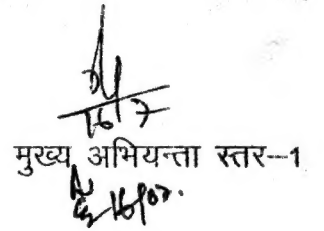 16/7
मुख्य अभियन्ता स्तर--1
16/07.